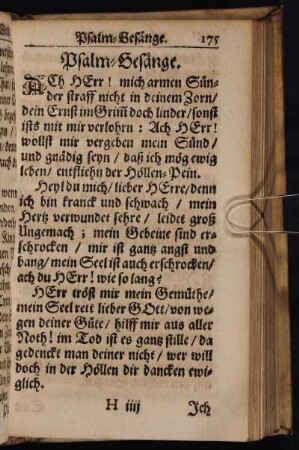 Psalm-Gesänge. 175
Psalm-Gesänge.
ACh HErr! mich armen Sün-
der straff nicht in deinem Zorn/
dein Ernst im Grim̃ doch linder/sonst
ists mit mir verlohrn: Ach HErr!
wollst mir vergeben mein Sünd/
und gnädig seyn/ daß ich mög ewig
leben/ entfliehn der Höllen-Pein.
Heyl du mich/ lieber HErre/denn
ich bin kranck und schwach/ mein
Hertz verwundet sehre/ leidet groß
Ungemach; mein Gebeine sind er-
schrocken/ mir ist gantz angst und
bang/ mein Seel ist auch erschrocken/
ach du HErr! wie so lang?
HErr tröst mir mein Gemüthe/
mein Seel rett lieber GOtt/ von we-
gen deiner Güte/ hilff mir aus aller
Noth! im Tod ist es gantz stille/ da
gedenckt man deiner nicht/ wer will
doch in der Höllen dir dancken ewi-
glich.
H iiij Ich